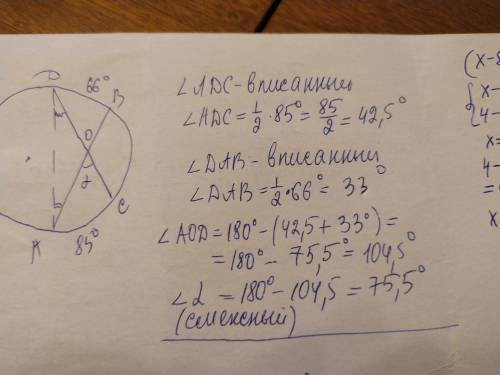 D 66° B
O
α
C
A 85°
∠ADC - вписанный
∠ADC = 1/2 · 85° = 85/2 = 42,5°
∠DAB - вписанный
∠DAB = 1/2 · 66° = 33°
∠AOD = 180° - (42,5 + 33°) =
= 180° - 75,5° = 104,5°
∠α = 180° - 104,5 = 75,5°
(смежный)
(x-8
x-
4-
x=
4-
=
x